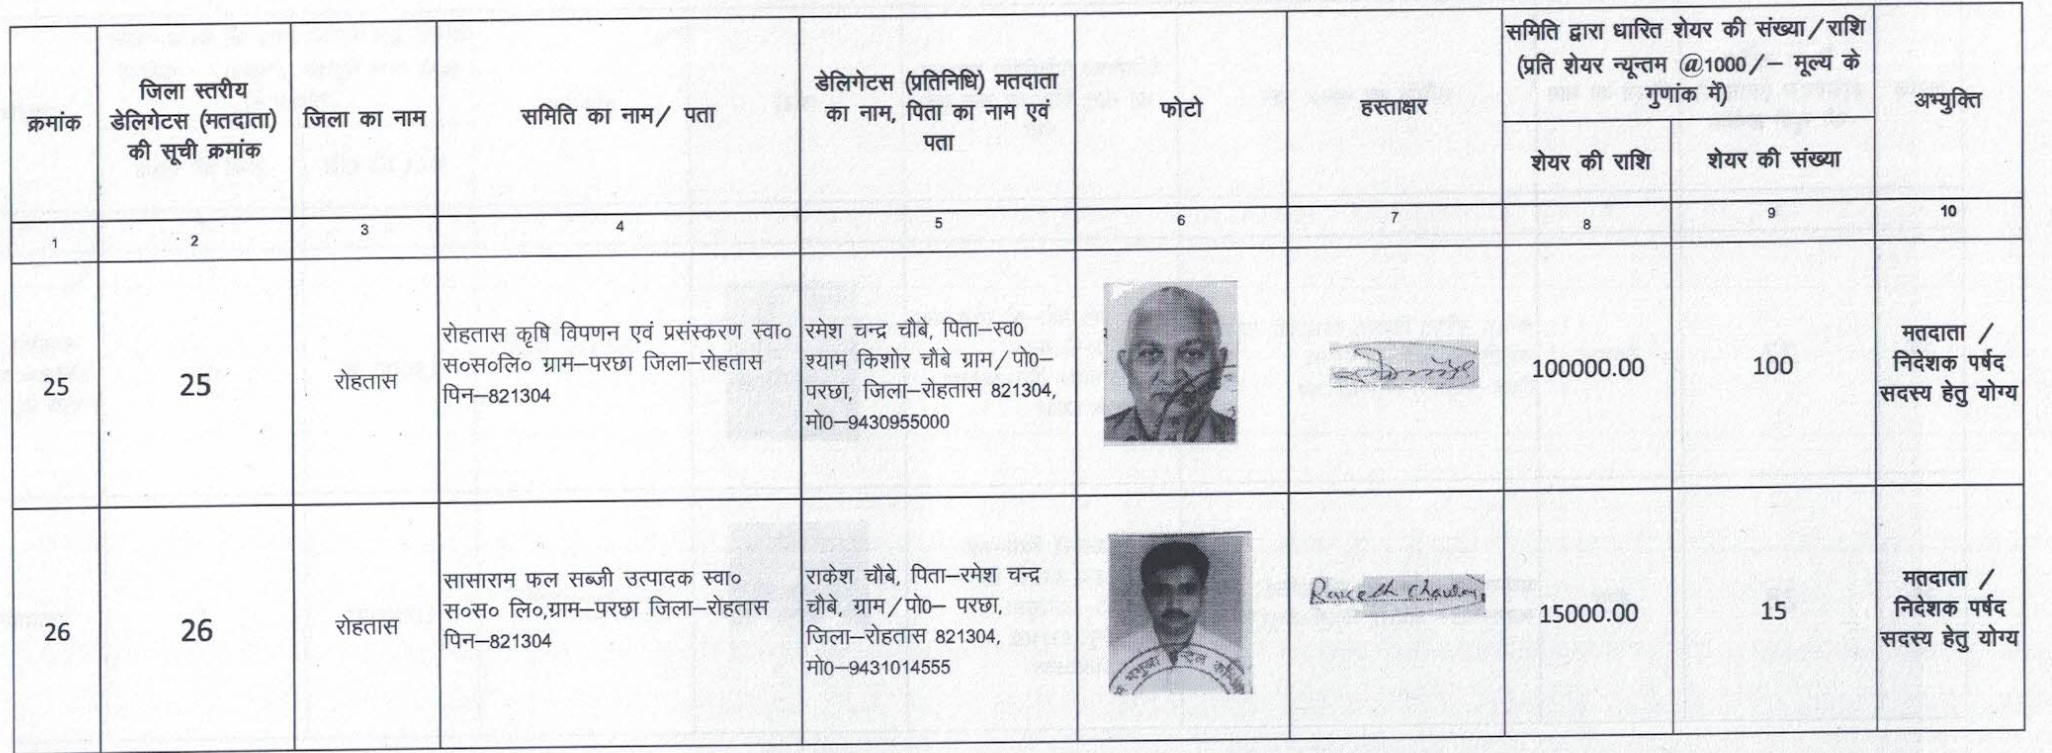 क्रमांक
जिला स्तरीय
डेलिगेटस (मतदाता)
की सूची क्रमांक
जिला का नाम
समिति का नाम/ पता
डेलिगेटस (प्रतिनिधि) मतदाता
का नाम, पिता का नाम एवं
पता
फोटो
हस्ताक्षर
समिति द्वारा धारित शेयर की संख्या/राशि
(प्रति शेयर न्यून्तम @1000/– मूल्य के
गुणांक में)
शेयर की राशि
शेयर की संख्या
अभ्युक्ति
1
2
3
4
5
6
7
8
9
10
25
25
रोहतास
रोहतास कृषि विपणन एवं प्रसंस्करण स्वा०
स०स०लि० ग्राम–परछा जिला–रोहतास
पिन–821304
रमेश चन्द्र चौबे, पिता–स्व0
श्याम किशोर चौबे ग्राम/पो0–
परछा, जिला–रोहतास 821304,
मो0–9430955000
100000.00
100
मतदाता /
निदेशक पर्षद
सदस्य हेतु योग्य
26
26
रोहतास
सासाराम फल सब्जी उत्पादक स्वा०
स०स० लि०,ग्राम–परछा जिला–रोहतास
पिन–821304
राकेश चौबे, पिता–रमेश चन्द्र
चौबे, ग्राम/पो0– परछा,
जिला–रोहतास 821304,
मो0–9431014555
15000.00
15
मतदाता /
निदेशक पर्षद
सदस्य हेतु योग्य